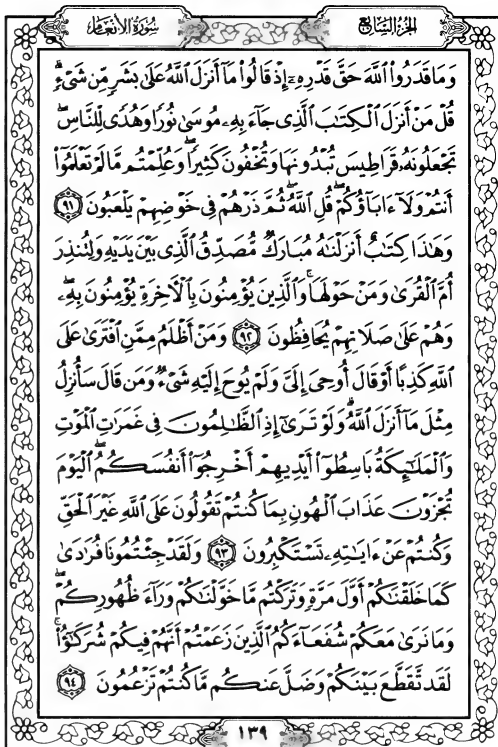 سُورَةُ الأَنْعَامِ
الجُزْءُ السَّابِعُ
وَمَا قَدَرُوا۟ ٱللَّهَ حَقَّ قَدْرِهِۦٓ إِذْ قَالُوا۟ مَآ أَنزَلَ ٱللَّهُ عَلَىٰ بَشَرٍ مِّن شَىْءٍۗ
قُلْ مَنْ أَنزَلَ ٱلْكِتَٰبَ ٱلَّذِى جَآءَ بِهِۦ مُوسَىٰ نُورًا وَهُدًى لِّلنَّاسِۖ
تَجْعَلُونَهُۥ قَرَاطِيسَ تُبْدُونَهَا وَتُخْفُونَ كَثِيرًاۖ وَعُلِّمْتُم مَّا لَمْ تَعْلَمُوٓا۟
أَنتُمْ وَلَآ ءَابَآؤُكُمْۖ قُلِ ٱللَّهُۖ ثُمَّ ذَرْهُمْ فِى خَوْضِهِمْ يَلْعَبُونَ ٩١
وَهَٰذَا كِتَٰبٌ أَنزَلْنَٰهُ مُبَارَكٌ مُّصَدِّقُ ٱلَّذِى بَيْنَ يَدَيْهِ وَلِتُنذِرَ
أُمَّ ٱلْقُرَىٰ وَمَنْ حَوْلَهَاۚ وَٱلَّذِينَ يُؤْمِنُونَ بِٱلْءَاخِرَةِ يُؤْمِنُونَ بِهِۦۖ
وَهُمْ عَلَىٰ صَلَاتِهِمْ يُحَافِظُونَ ٩٢ وَمَنْ أَظْلَمُ مِمَّنِ ٱفْتَرَىٰ عَلَى
ٱللَّهِ كَذِبًا أَوْ قَالَ أُوحِىَ إِلَىَّ وَلَمْ يُوحَ إِلَيْهِ شَىْءٌ وَمَن قَالَ سَأُنزِلُ
مِثْلَ مَآ أَنزَلَ ٱللَّهُۗ وَلَوْ تَرَىٰٓ إِذِ ٱلظَّٰلِمُونَ فِى غَمَرَٰتِ ٱلْمَوْتِ
وَٱلْمَلَٰٓئِكَةُ بَاسِطُوٓا۟ أَيْدِيهِمْ أَخْرِجُوٓا۟ أَنفُسَكُمُۖ ٱلْيَوْمَ
تُجْزَوْنَ عَذَابَ ٱلْهُونِ بِمَا كُنتُمْ تَقُولُونَ عَلَى ٱللَّهِ غَيْرَ ٱلْحَقِّ
وَكُنتُمْ عَنْ ءَايَٰتِهِۦ تَسْتَكْبِرُونَ ٩٣ وَلَقَدْ جِئْتُمُونَا فُرَٰدَىٰ
كَمَا خَلَقْنَٰكُمْ أَوَّلَ مَرَّةٍ وَتَرَكْتُم مَّا خَوَّلْنَٰكُمْ وَرَآءَ ظُهُورِكُمْۖ
وَمَا نَرَىٰ مَعَكُمْ شُفَعَآءَكُمُ ٱلَّذِينَ زَعَمْتُمْ أَنَّهُمْ فِيكُمْ شُرَكَٰٓؤُا۟ۚ
لَقَد تَّقَطَّعَ بَيْنَكُمْ وَضَلَّ عَنكُم مَّا كُنتُمْ تَزْعُمُونَ ٩٤
١٣٩